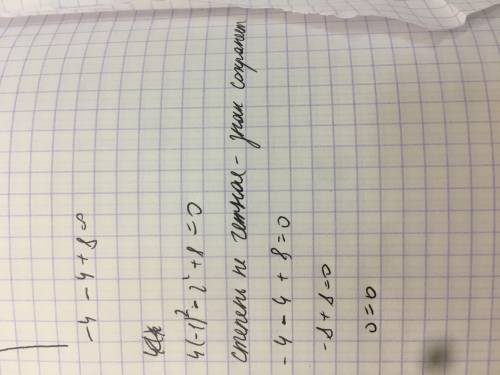 -4 - 4 + 8 =
4(-1)² = 2² + 8 = 0
степень не четная - знак сохранит
-4 - 4 + 8 = 0
-8 + 8 = 0
0 = 0